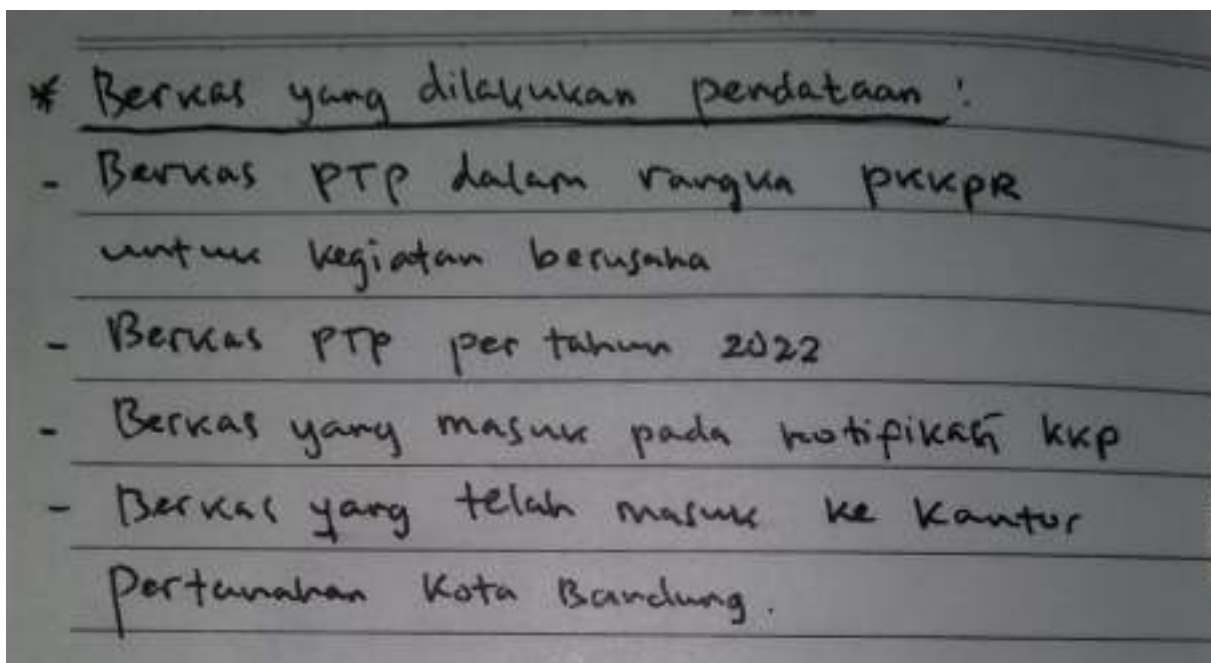 * Berkas yang dilakukan pendataan :
- Berkas PTP dalam rangka PKKPR
untuk kegiatan berusaha
- Berkas PTP per tahun 2022
- Berkas yang masuk pada notifikasi KKP
- Berkas yang telah masuk ke Kantor
Pertanahan Kota Bandung.